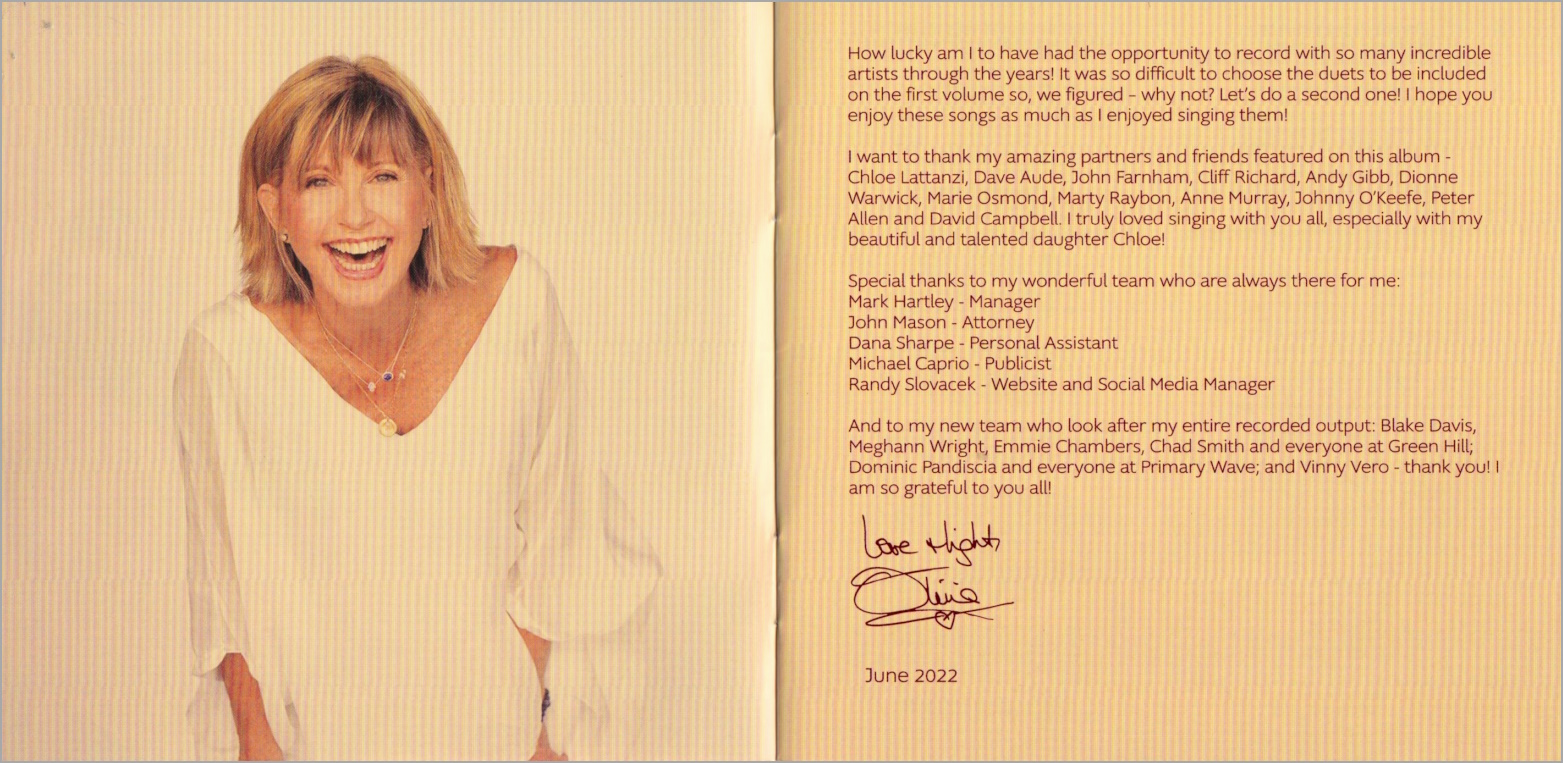 How lucky am I to have had the opportunity to record with so many incredible
artists through the years! It was so difficult to choose the duets to be included
on the first volume so, we figured – why not? Let's do a second one! I hope you
enjoy these songs as much as I enjoyed singing them!
I want to thank my amazing partners and friends featured on this album -
Chloe Lattanzi, Dave Aude, John Farnham, Cliff Richard, Andy Gibb, Dionne
Warwick, Marie Osmond, Marty Raybon, Anne Murray, Johnny O'Keefe, Peter
Allen and David Campbell. I truly loved singing with you all, especially with my
beautiful and talented daughter Chloe!
Special thanks to my wonderful team who are always there for me:
Mark Hartley - Manager
John Mason - Attorney
Dana Sharpe - Personal Assistant
Michael Caprio - Publicist
Randy Slovacek - Website and Social Media Manager
And to my new team who look after my entire recorded output: Blake Davis,
Meghann Wright, Emmie Chambers, Chad Smith and everyone at Green Hill;
Dominic Pandiscia and everyone at Primary Wave; and Vinny Vero - thank you! I
am so grateful to you all!
Love + light,
Olivia
June 2022